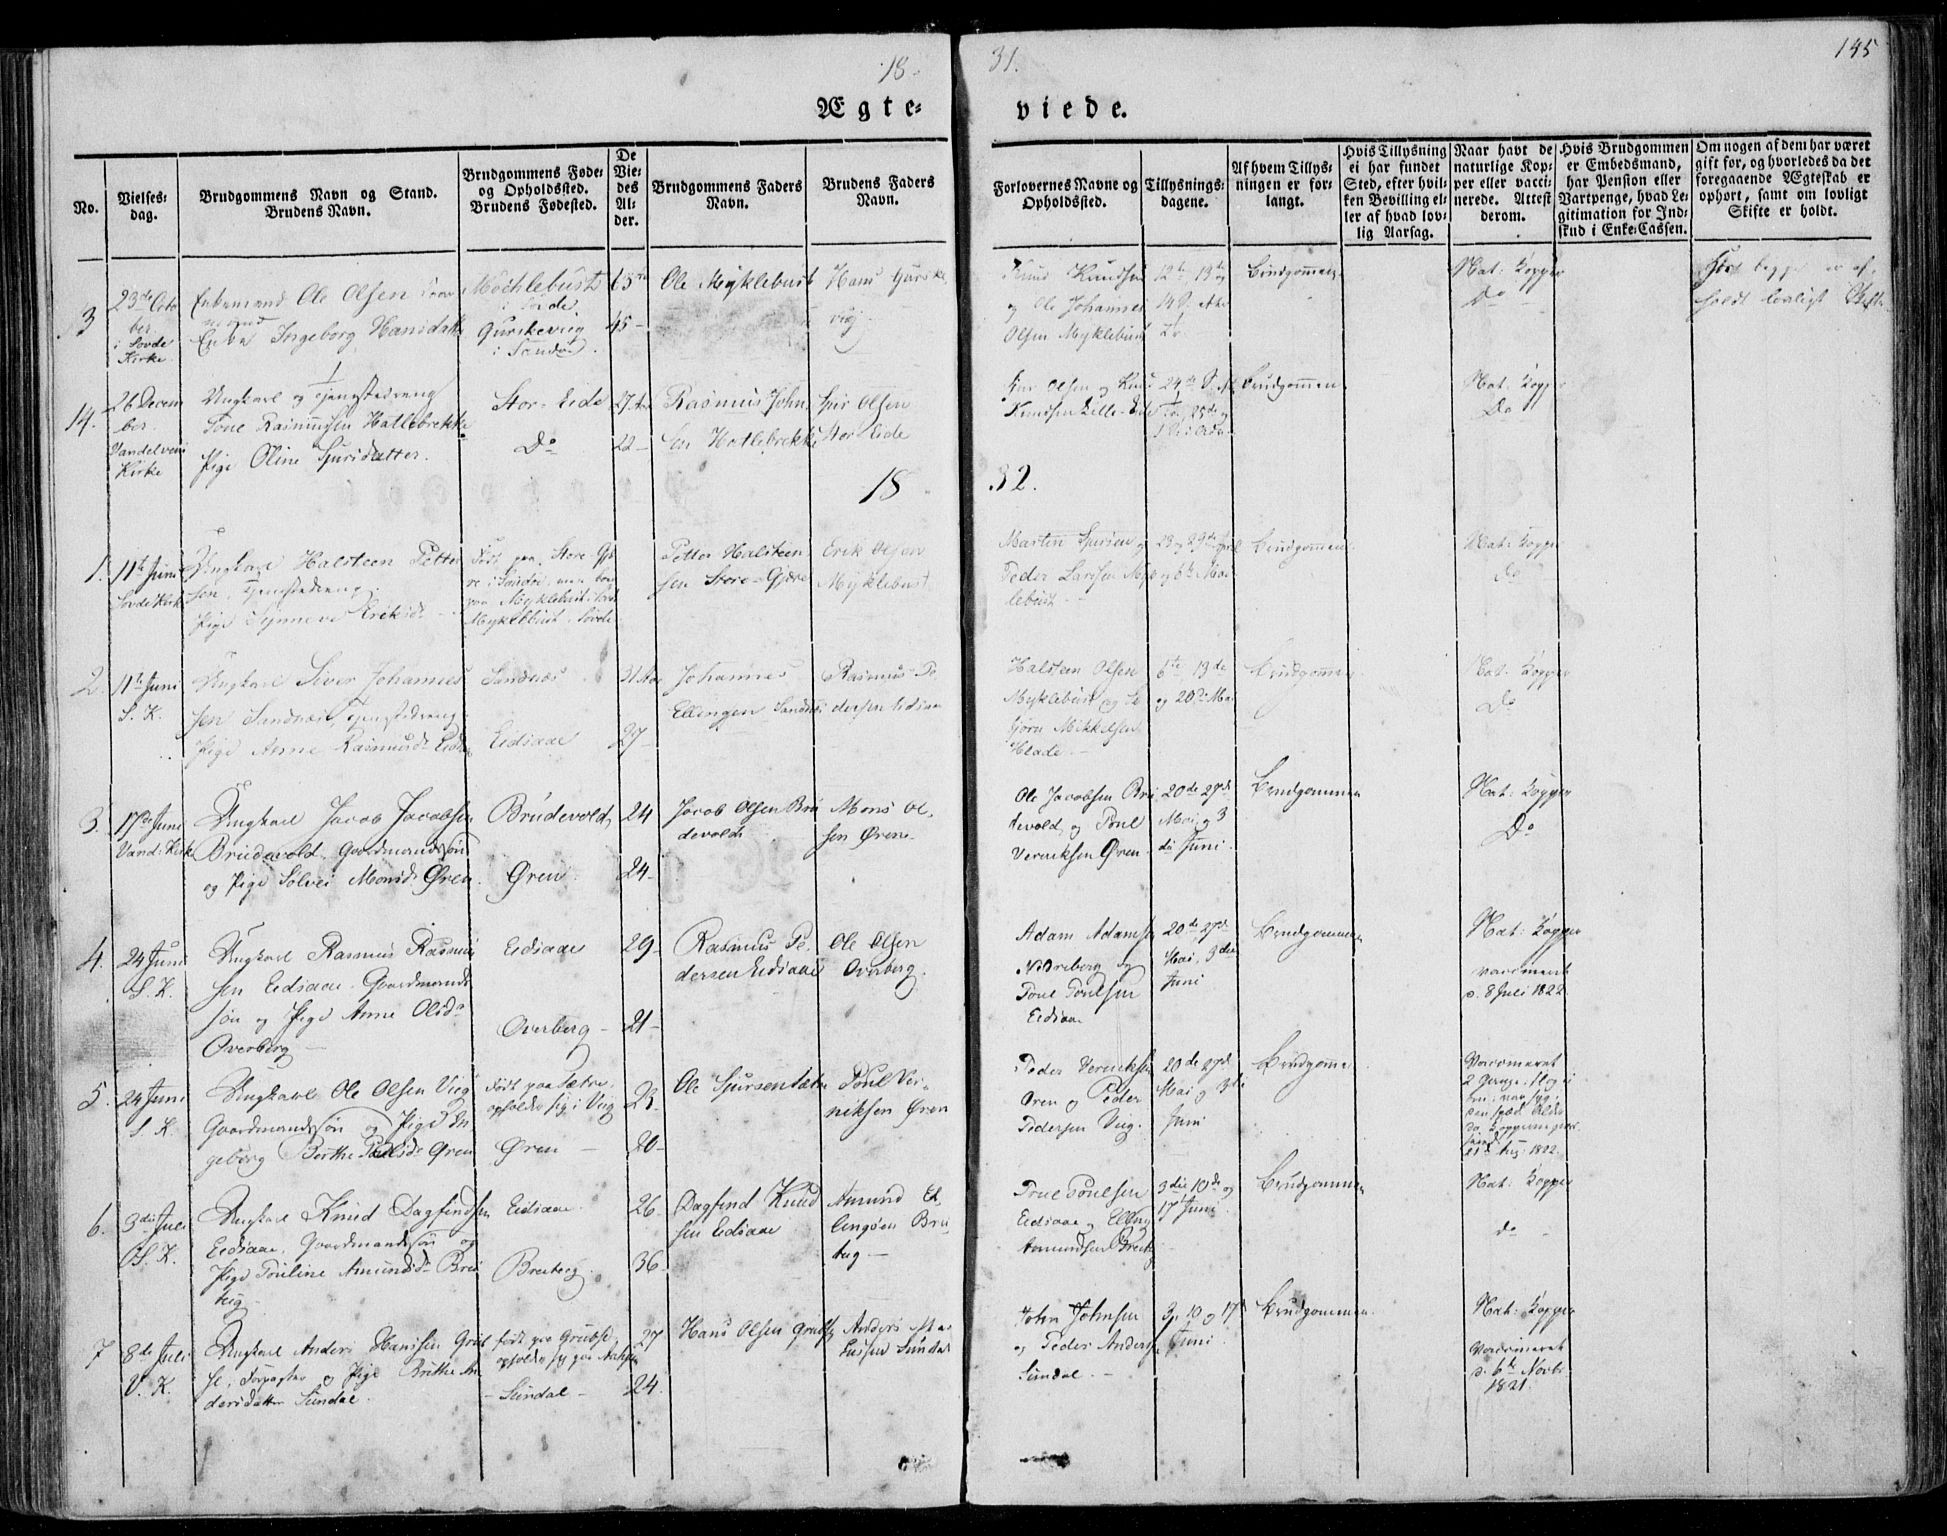 18
31.
145
Ægte-
viede.
No.
Vielses-
dag.
Brudgommens Navn og Stand.
Brudens Navn.
Brudgommens Føde-
og Opholdssted.
Brudens Fødested.
De
Vie-
des
Al-
der.
Brudgommens Faders
Navn.
Brudens Faders
Navn.
Forlovernes Navne og
Opholdssted.
Tillysnings-
dagene.
Af hvem Tillys-
ningen er for-
langt.
Hvis Tillysning
ei har fundet
Sted, efter hvil-
ken Bevilling el-
ler af hvad lov-
lig Aarsag.
Naar havt de
naturlige Kop-
per eller vacci-
nerede. Attest
derom.
Hvis Brudgommen
er Embedsmand,
har Pension eller
Vartpenge, hvad Le-
gitimation for Ind-
skud i Enke-Cassen.
Om nogen af dem har været
gift før, og hvorledes da det
foregaaende Ægteskab er
ophørt, samt om lovligt
Skifte er holdt.
23de Octo
ber
i Sovde
Kirke
Enkemand Ole Olsen
Enke Ingeborg Hansdatter
Gurskevug
i Sandø.
65
45-
Ole Myklebust
Hans Gurske
vig
Knud Knudsen
og Ole Johannes
Olsen Myklebust
Brudgommen
Nat: Kopper
Do
holdt lovligt Skifte
14.
26 Decem
ber.
Vandelven
Kirke
Ungkarl og Tjenestedreng
Poul Rasmussen Hatlebrekke
Pige Oline Sjursdatter.
Stor-Eide
Do
27
22-
Rasmus John
sen Hatlebrekke
Sjur Olsen
Stor Eide
Sjur Olsen og Knud
Knudsen Lille-Eide
Brudgommen
Nat: Kopper
Do
18
32.
1.
11te Juni
Sovde Kirk
Ungkarl Halsteen Petter
sen, Tjenestedreng
Pige Synneve Eriksd-
Født paa Store-Gje
re i Sandø, men boe
paa Myklebust i Sovde
Myklebust i Sovde
Petter Halsteen
sen Store-Gjære
Erik Olsen
Myklebust
Martin Sjursen og
Peder Larssen Myk
lebust
Brudgommen
Nat: Kopper
do
2.
11te Juni
S. K.
Ungkarl Siver Johannes
sen Sandnæs, Tjenestedreng
Pige Anne Rasmusd- Eidsaa
Sandnæs
Eidsaae
31
27-
Johannes
Ellingsen Sandnæs
Rasmus Pe
dersen Eidsaae
Halsteen Olsen
Myklebust og
Mikkelsen
Hlade
6te 13de
og 20de Mai
Brudgommen
Nat: Kopper
Do
3.
17de Juni
Vand: Kirke
Ungkarl Jacob Jacobsen
Brudevold, Gaardmandssøn
og Pige Solvei Monsd- Øren.
Brudevold
Øren
24
24-
Jacob Olsen Bru
devold
Mons Ol-
sen Øren
Ole Jacobsen Bru
devold og Poul
Verniksen Øren
20de 27de
Mai og 3
die Juni
Brudgommen
Nat: Kopper
Do
4.
24 Juni
S. K.
Ungkarl Rasmus Rasmus
sen Eidsaae, Gaardmands
søn og Pige Anne Olsd-
Overberg
Eidsaae
Overberg
29-
21-
Rasmus Pe
dersen Eidsaae
Ole Olsen
Overberg.
Adam Adamsen
Nøreberg og
Poul Poulsen
Eidsaae
20de 27de
Mai, 3die
Juni
Brudgommen
Nat: Kopper
vaccineret
d. 8 Juli 1822
5.
24 Juni
S. K.
Ungkarl Ole Olsen Viig
Gaardmandssøn og Pige In
geborg Berthe Poulsd- Øren
Født paa Sætre,
opholder sig i Viig
Øren
23-
20-
Ole Sjursen Sætre
Poul Ver-
niksen Øren
Peder Verniksen
Øren og Peder
Pedersen Viig.
20de 27de
Mai og 3die
Juni
Brudgommen
Vaccineret
1822
6.
3die Juli
S. K.
Ungkarl Knud Dagfindsen
Eidsaae, Gaardmandssøn og
Pige Pouline Amundsd- Brei
teig
Eidsaae
Breiteig
26-
36-
Dagfind Knud
sen Eidsaae
Amund El
lingsen Brei
teig
Poul Poulsen
Eidsaae og Elling
Amundsen Breiteig
3die 10de og
17 Juni
Brudgommen
Nat: Kopper
do
7
8de Juli
V. K.
Ungkarl Anders Hanssen Grub
se, Forpagter og Pige Brithe An
dersdatter Sundal.
født paa Grubse,
opholder sig paa
Sundal
27
24.
Hans Olsen Grubse
Anders
Sundal
John Johnsen
og Peder Anders
Sundal.
3, 10 og 17
Juni
Brudgommen
Nat: Kopper
Vaccineret
d. 6te Novbr
1821.